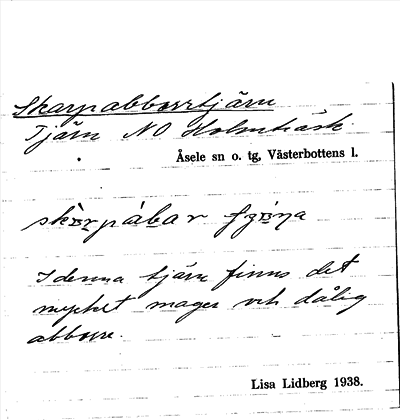 Skarpabborrtjärn
Tjärn NO Holmträsk.
Åsele sn o. tg, Västerbottens l.
I denna tjärn finns det
mycket mager och dålig
abborre.
Lisa Lidberg 1938.